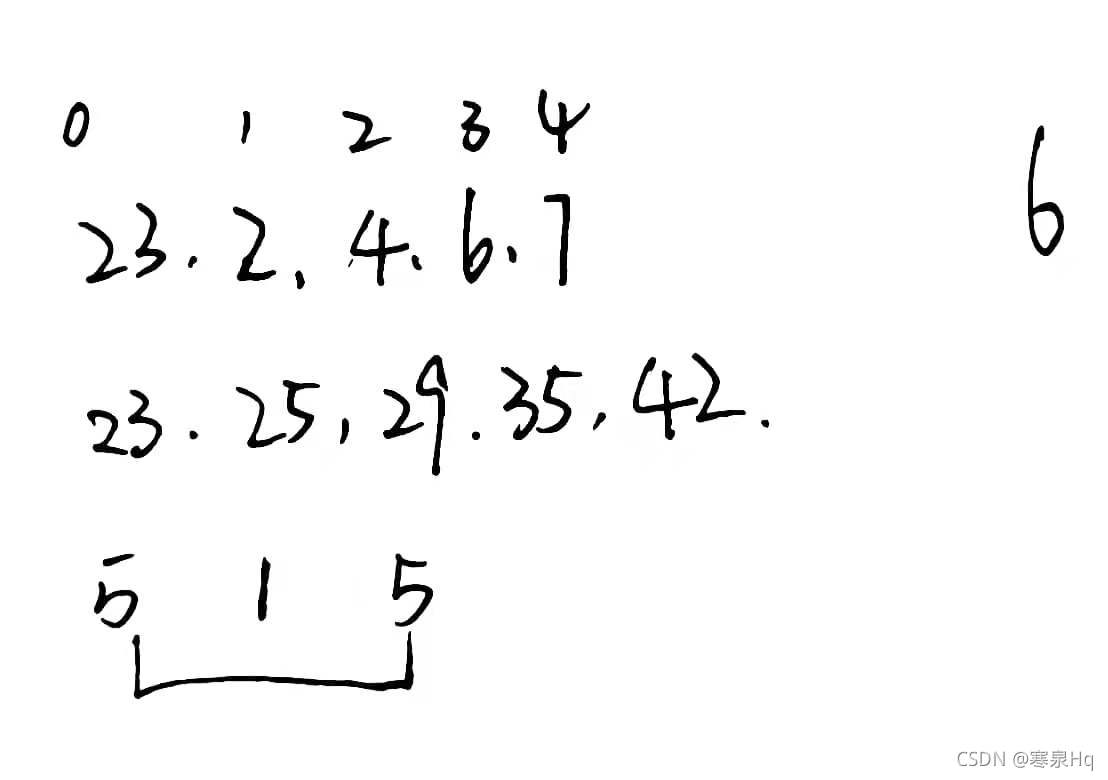 0 1 2 3 4
23. 2, 4. 6. 7
6
23. 25, 29. 35, 42.
5 1 5
CSDN @寒泉Hq